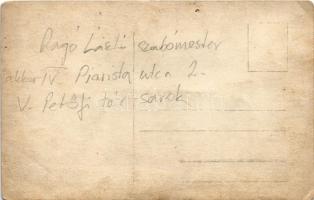 Ragó László szabómester
akkor IV. Piarista utca 2.
V. Petőfi tér sarok